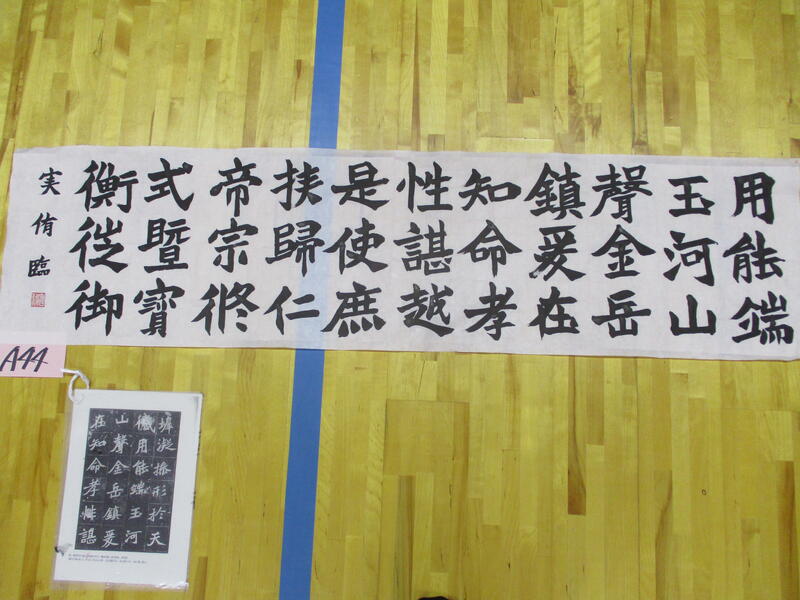 用能端
玉河山
聲金岳
鎮爰在
知命孝
性諶越
是使庶
挟歸仁
帝宗修
式曁寶
衡従御
実侑臨
A44
凝操形於天
用能端玉河
山聲金岳鎮爰
在知命孝性諶